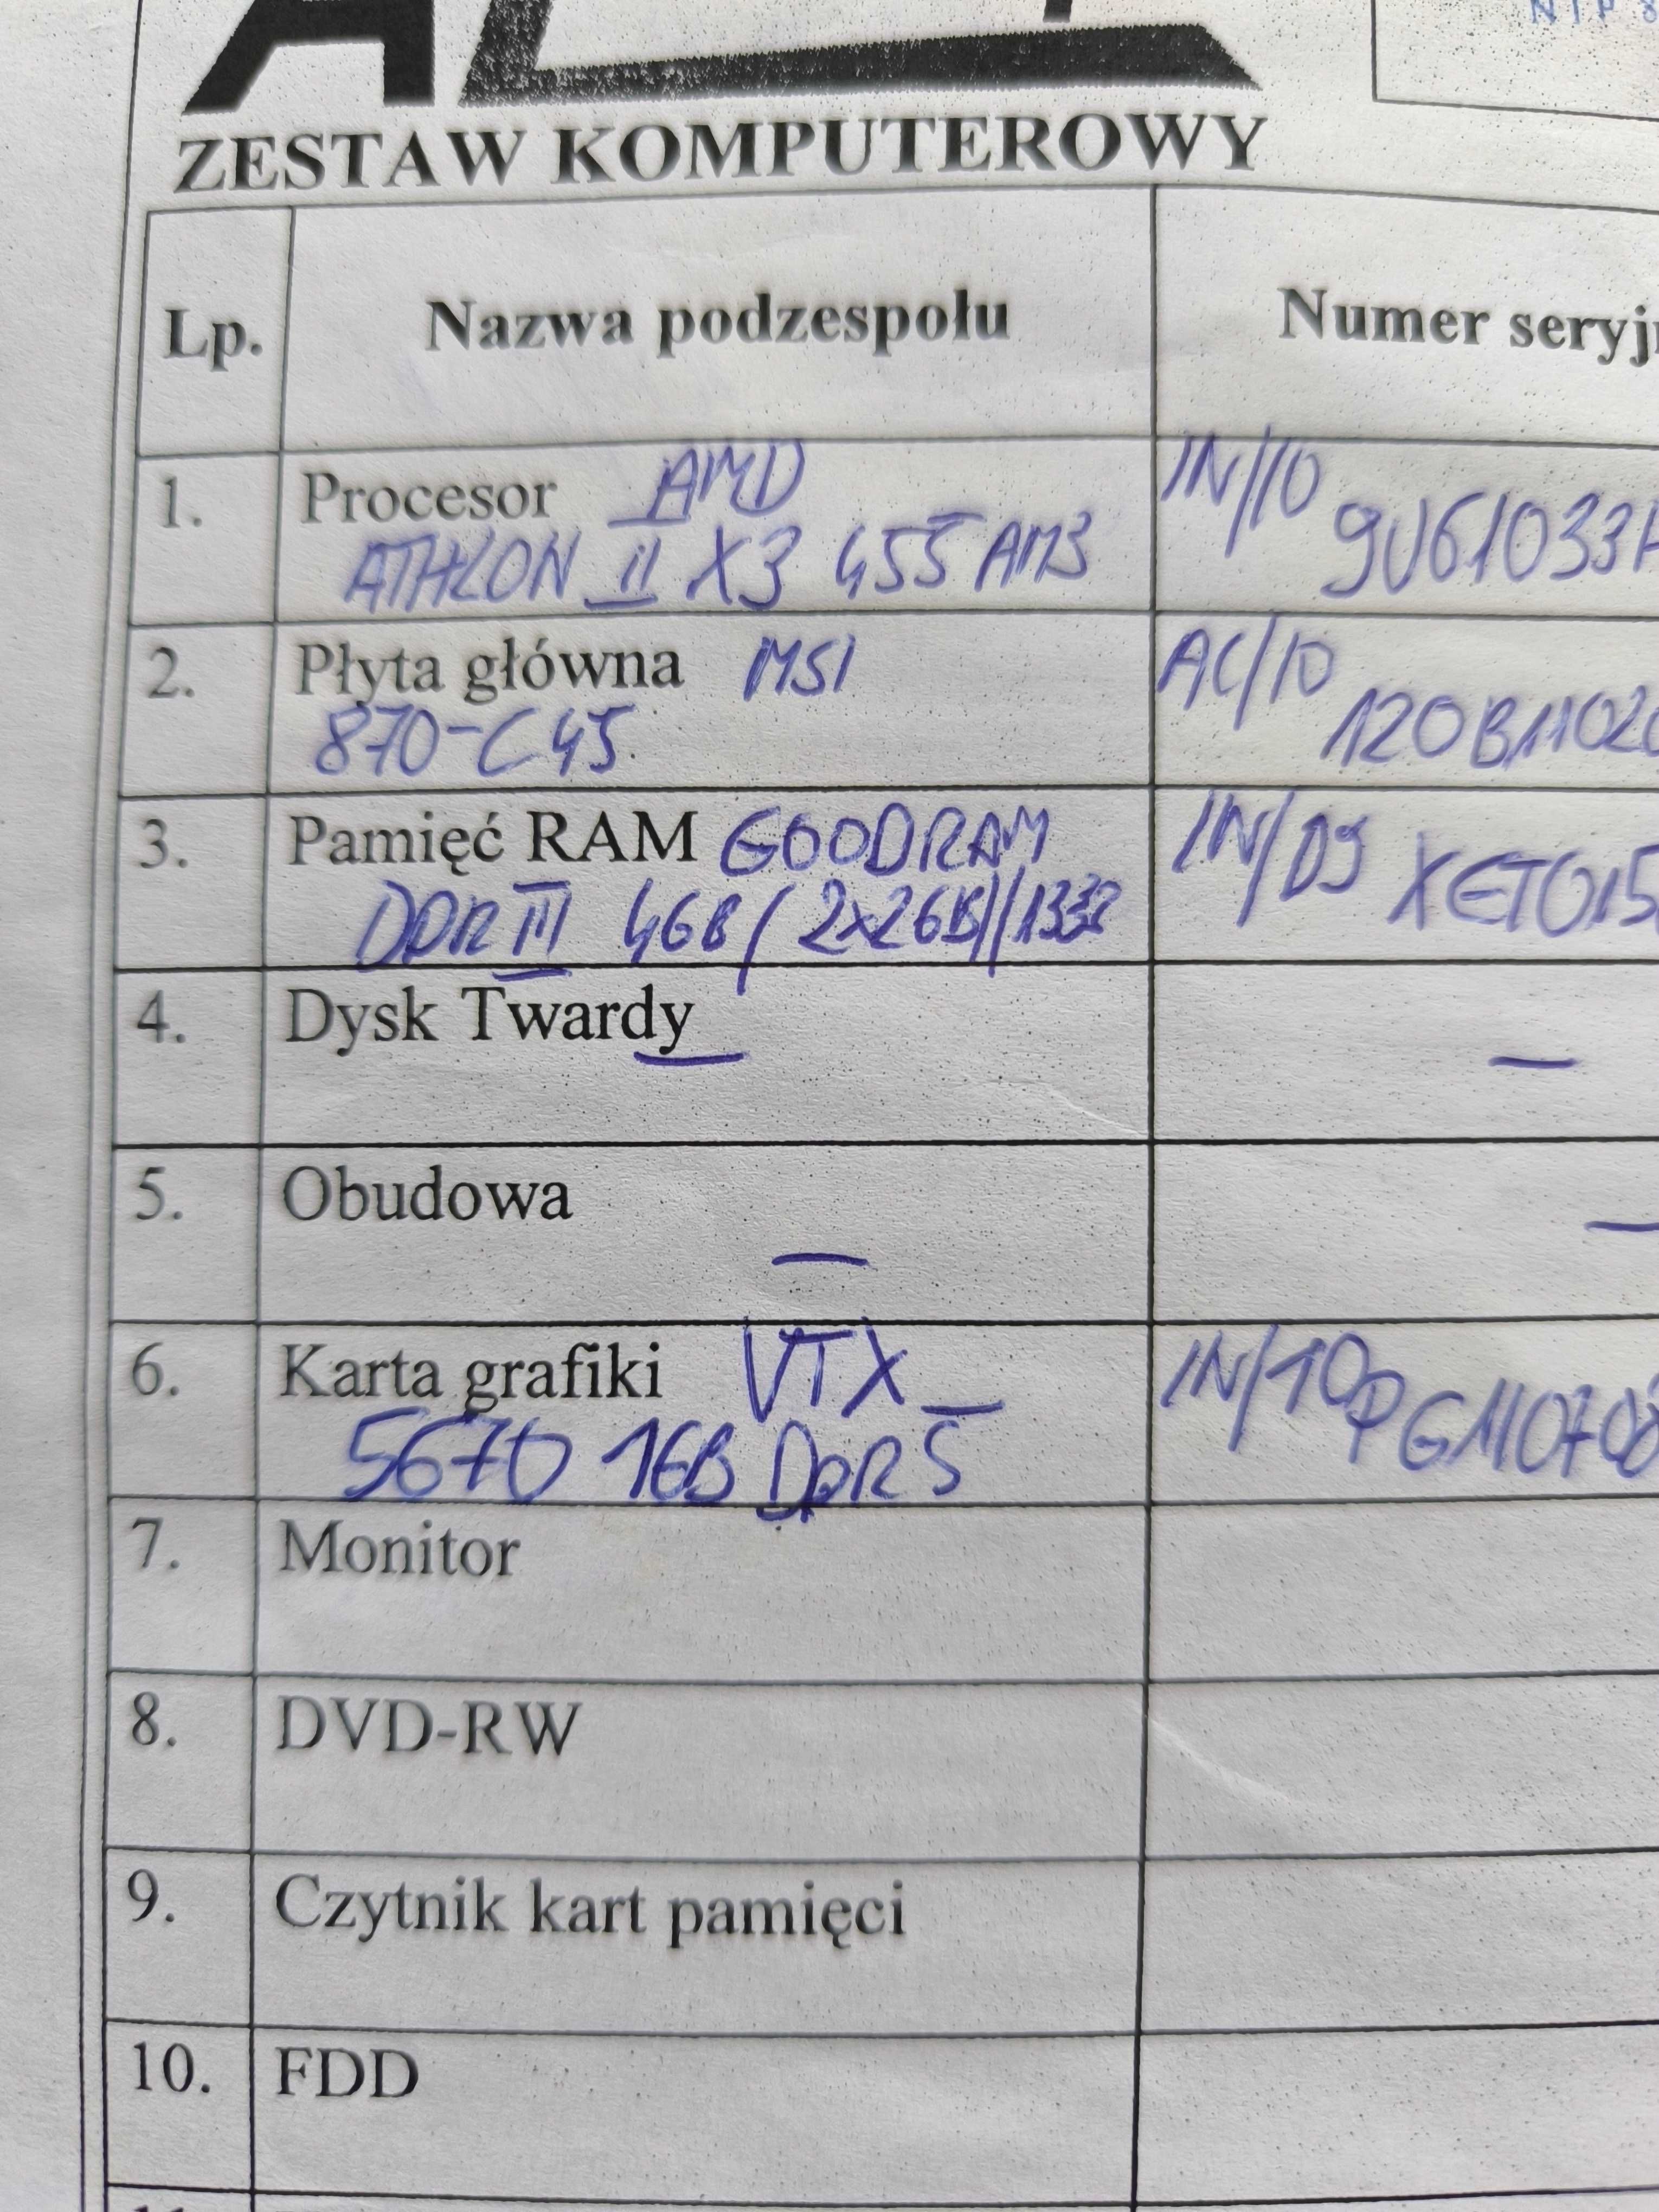 ZESTAW KOMPUTEROWY
Lp. Nazwa podzespołu Numer seryj
1. Procesor AMD IN/10
ATHLON II X3 455 AM3 9U61033
2. Płyta główna MSI AC/10
870-C45 120B1102
3. Pamięć RAM GOODRAM IN/09
DDR III 4GB/2x2GB//1333 XET015
4. Dysk Twardy —
—
5. Obudowa —
—
6. Karta grafiki VTX_ IN/10
5670 1GB DDR5 PG110708
7. Monitor
8. DVD-RW
9. Czytnik kart pamięci
10. FDD